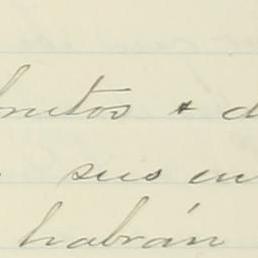 frutos + d
sus en
habrán